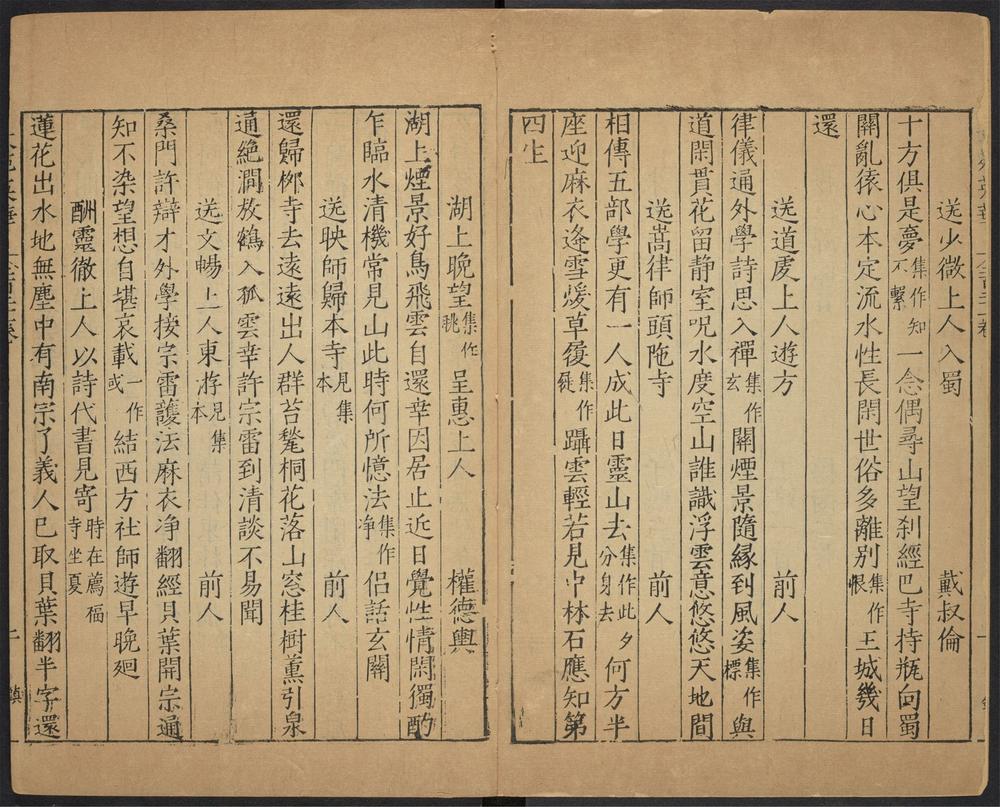 送少微上人入蜀 戴叔倫
十方俱是夢集作知不繫一念偶尋山望刹經巴寺持瓶向蜀
關亂猿心本定流水性長閑世俗多離别集作恨王城幾日
還
送道虔上人遊方 前人
律儀通外學詩思入禪集作玄關煙景隨緣到風姿集作標與
道閑貫花留静室呪水度空山誰識浮雲意悠悠天地間
送嵩律師頭陁寺 前人
相傳五部學更有一人成此日靈山去集作此夕分身去何方半
座迎麻衣逢雪煖草履集作屣躡雲輕若見中林石應知第
四生
湖上晚望集作眺呈惠上人 權德輿
湖上煙景好鳥飛雲自還幸因居止近日覺性情閑獨酌
乍臨水清機常見山此時何所憶法集作净侣話玄關
送映師歸本寺見集本 前人
還歸栁寺去遠遠出人群苔甃桐花落山窓桂樹薰引泉
通絶澗放鶴入孤雲幸許宗雷到清談不易聞
送文暢上人東游見集本 前人
桑門許辯才外學接宗雷護法麻衣净翻經貝葉開宗通
知不染望想自堪哀載一作或結西方社師遊早晚廻
酬靈徹上人以詩代書見寄時在薦福寺坐夏
蓮花出水地無塵中有南宗了義人已取貝葉翻半字還